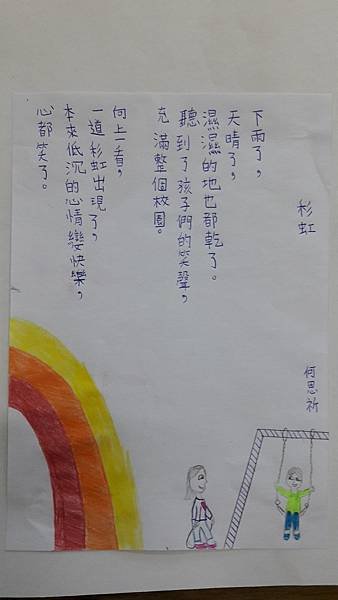 彩虹
何思祈
下雨了，
天晴了，
濕濕的地也都乾了。
聽到了孩子們的笑聲，
充滿整個校園。
向上一看，
一道彩虹出現了，
本來低沉的心情變快樂，
心都笑了。